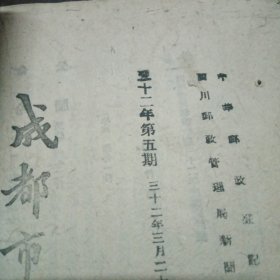 中華郵政登記
四川郵政管理局新聞
三十二年第五期
三十二年三月二十
成都市